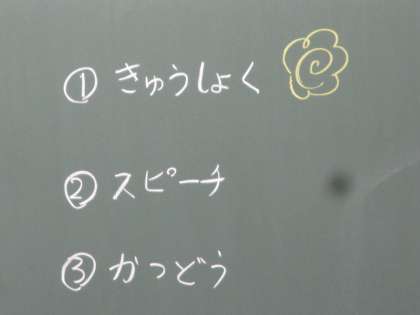 ① きゅうしょく
② スピーチ
③ かつどう